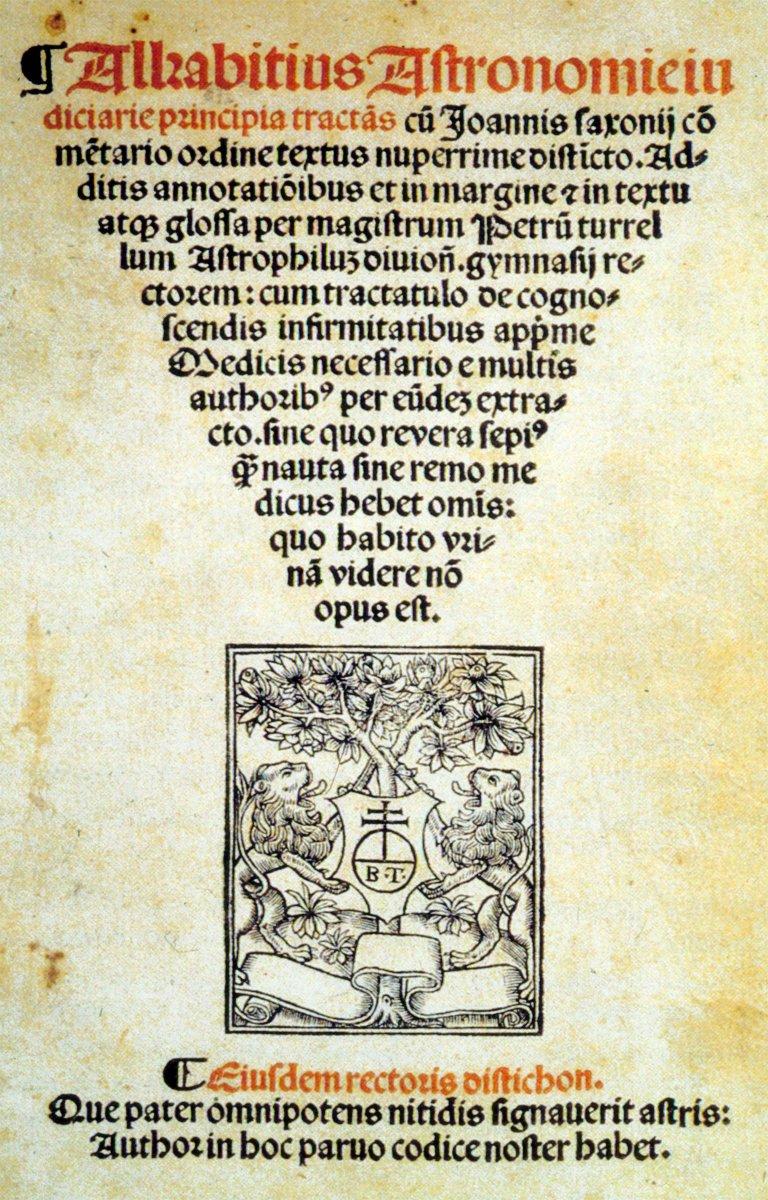 ¶ Alkabitius Astronomie iu
diciarie principia tractãs cũ Joannis saxonij cõ
mẽtario ordine textus nuperrime distĩcto. Ad⸗
ditis annotatiõibus et in margine ⁊ in textu
atqꝫ glossa per magistrum Petrũ turrel
lum Astrophiluꝫ diuioñ. gymnasij re⸗
ctorem: cum tractatulo de cogno⸗
scendis infirmitatibus app̃me
Medicis necessario e multis
authoribꝰ per eũdeꝫ extra⸗
cto. sine quo revera sepiꝰ
q̃ꝫ nauta sine remo me
dicus hebet omĩs:
quo habito vri⸗
nã videre nõ
opus est.
B·T·
¶ Eiusdem rectoris distichon.
Que pater omnipotens nitidis signauerit astris:
Author in hoc paruo codice noster habet.